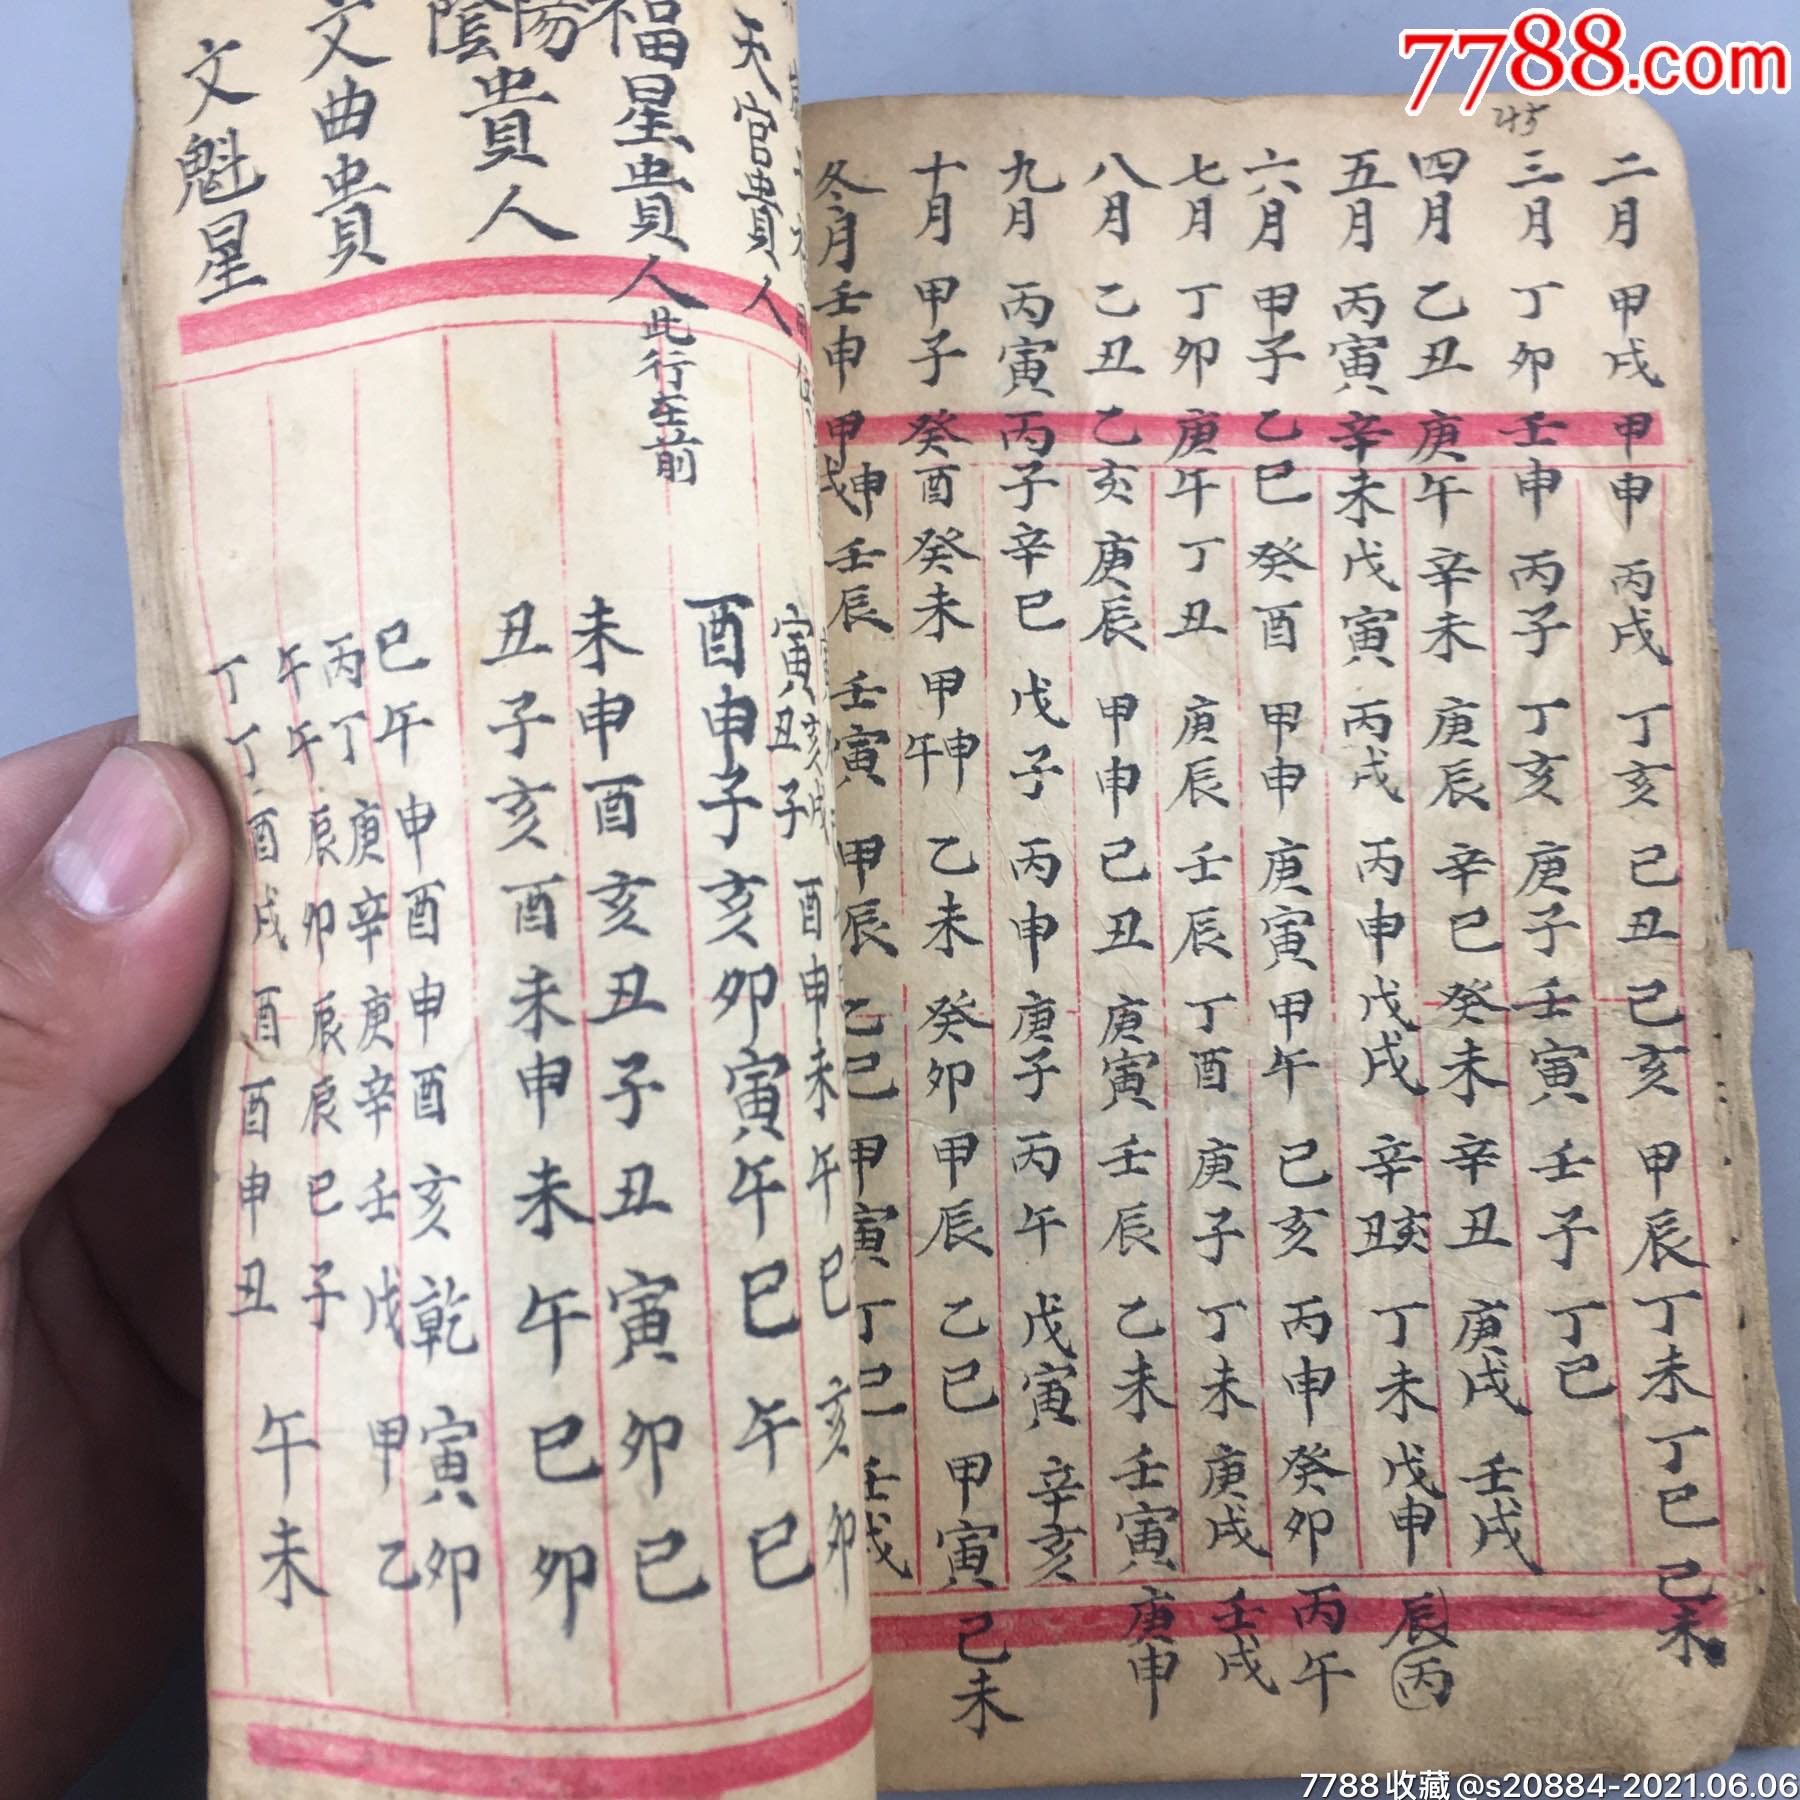 7788.com
二月 甲戌 甲申 丙戌 丁亥 己丑 己亥 甲辰 丁未 丁巳 己未
三月 丁卯 壬申 丙子 丁亥 庚子 壬寅 壬子 丁巳
四月 乙丑 庚午 辛未 庚辰 辛巳 癸未 辛丑 庚戌 壬戌
五月 丙寅 辛未 戊寅 丙戌 丙申 戊戌 辛亥丑 丁未 戊申 丙辰
六月 甲子 乙巳 癸酉 甲申 庚寅 甲午 己亥 丙申 癸卯 丙午
七月 丁卯 庚午 丁丑 庚辰 壬辰 丁酉 庚子 丁未 庚戌 壬戌
八月 乙丑 乙亥 庚辰 甲申 己丑 庚寅 壬辰 乙未 壬寅 庚申
九月 丙寅 丙子 辛巳 戊子 丙申 庚子 丙午 戊寅 辛亥
十月 甲子 癸酉 癸未 甲申午 乙未 癸卯 甲辰 乙巳 甲寅 己未
冬月 壬申 甲申戌 壬辰 壬寅 甲辰 乙巳 甲寅 丁巳 壬戌
天官貴人
寅丑子
酉申未午巳亥卯
福星貴人 此行在前 酉申子亥卯寅午巳午巳
陰陽貴人
未申酉亥丑子丑寅卯巳
丑子亥酉未申未午巳卯
文曲貴
巳午申酉申酉亥乾寅卯
丙丁庚辛庚辛壬戊甲乙
文魁星
午午辰卯辰辰巳子
丁丁酉戌酉酉申丑午未
7788收藏@s20884-2021.06.06